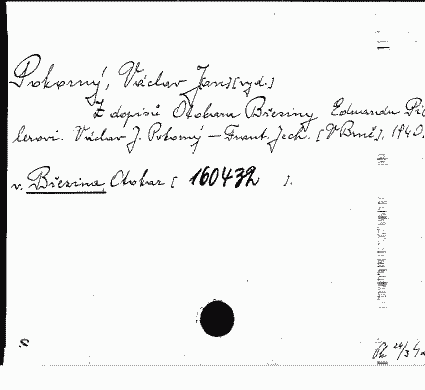 Pokorný, Václav Jan [vyd.]
Z dopisů Otokara Březiny Edmundu Pic
lerovi. Václav J. Pokorný – Frant. Jech. [V Brně], 1940.
v. Březina, Otokar [ 160432 ].
S